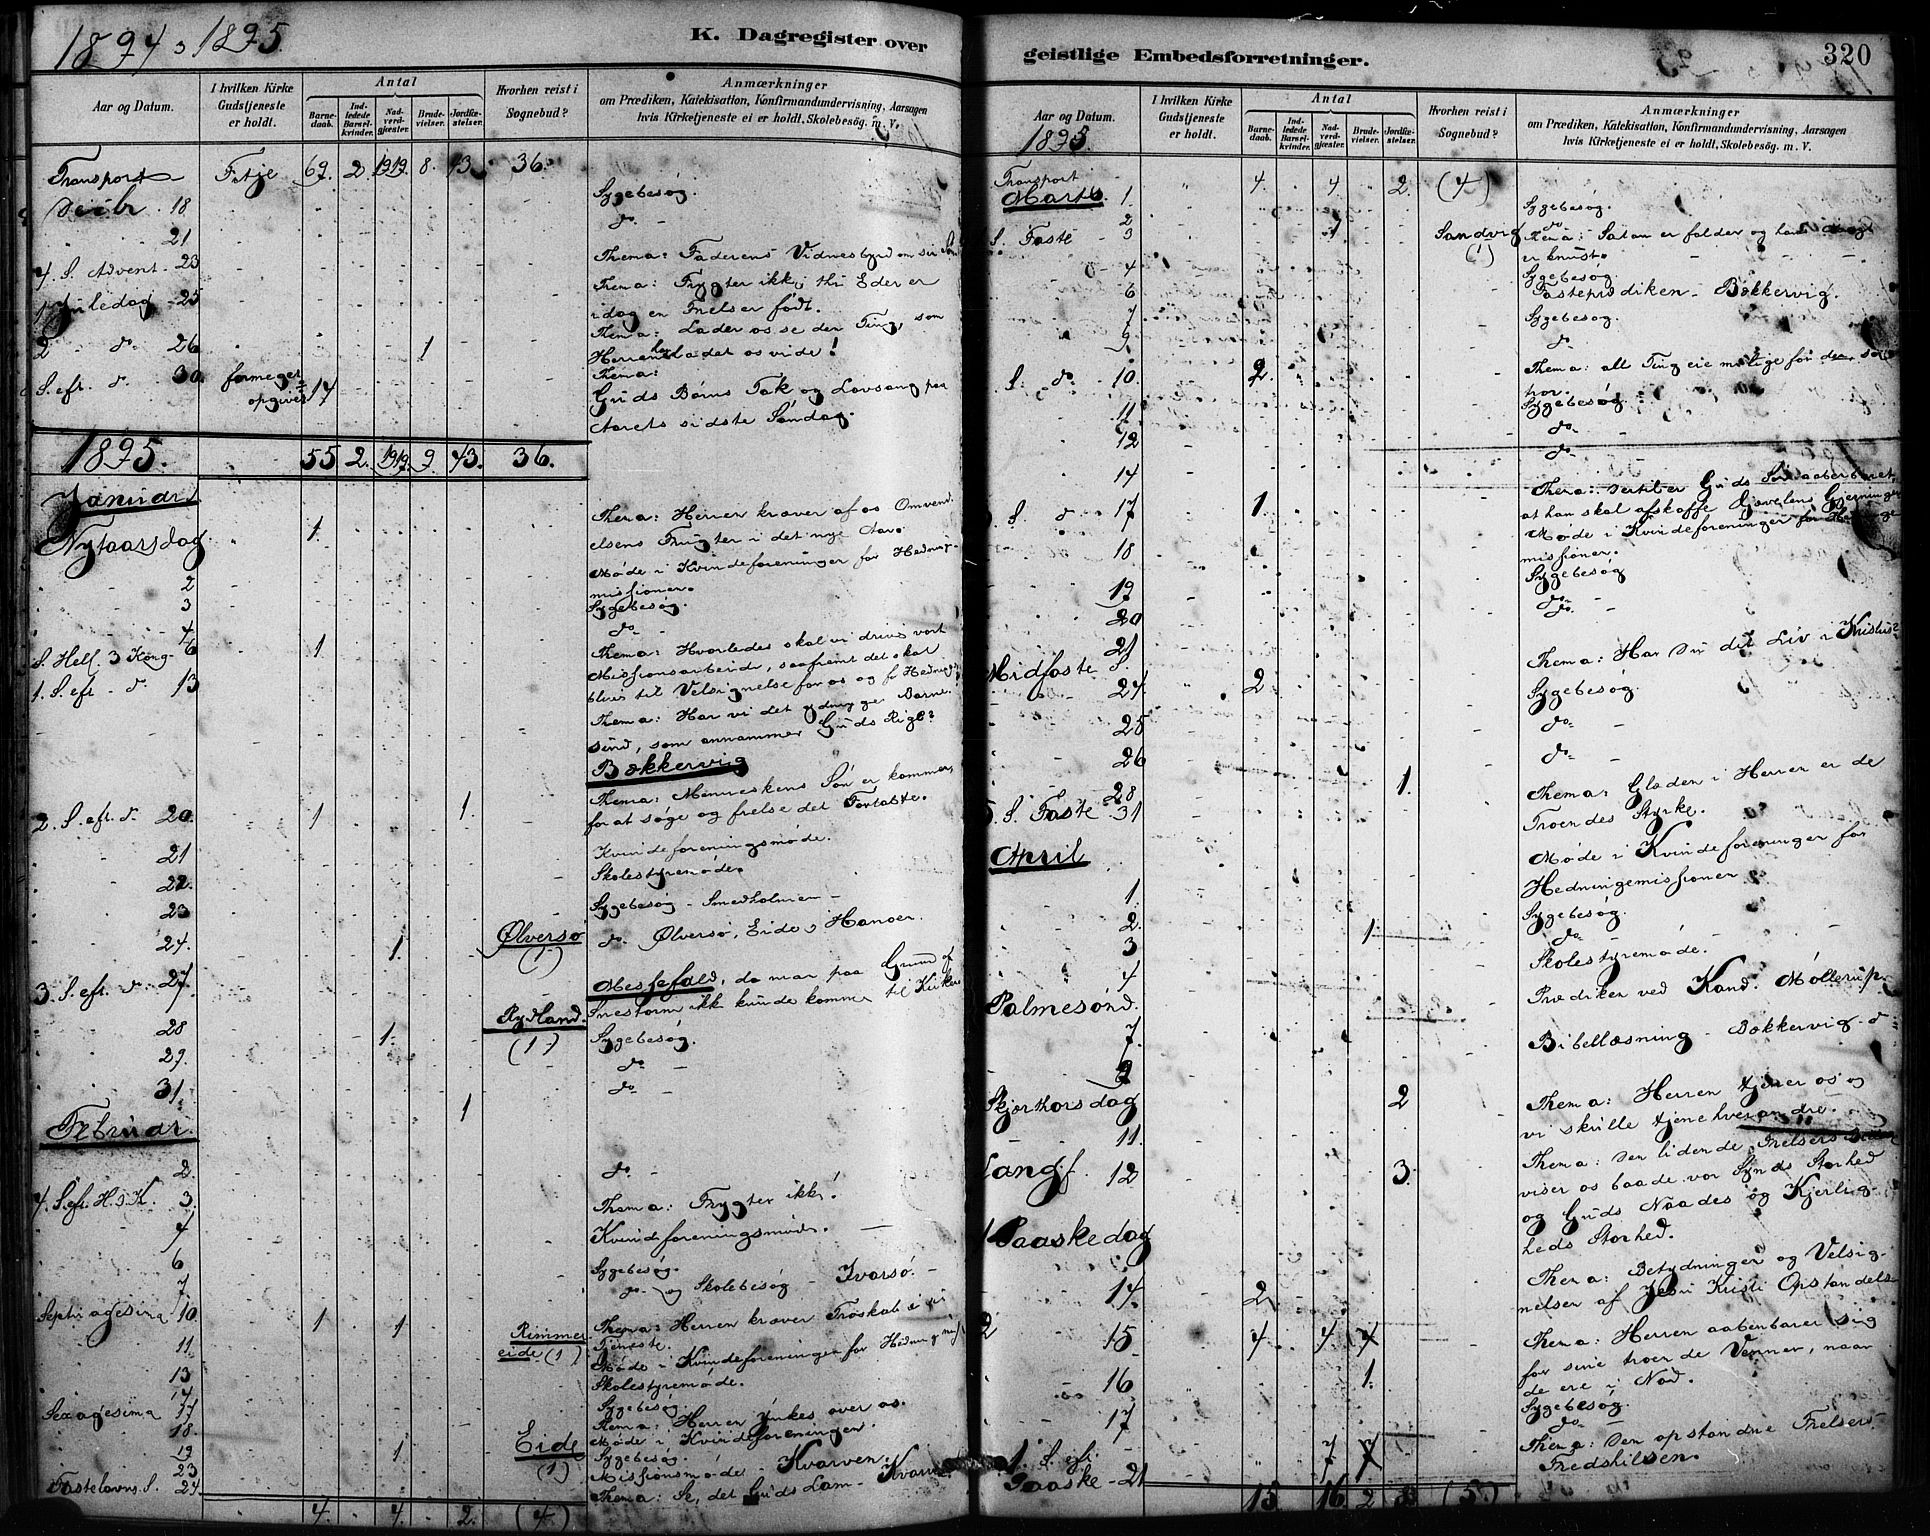 1894 & 1895
K. Dagregister over
Aar og Datum.
I hvilken Kirke Gudstjeneste er holdt.
Antal
Barnedaab.
Indledede Barselkvinder.
Nadverdgjester.
Brudevielser.
Jordfæstelser.
Hvorhen reist i Sognebud?
Anmærkninger
om Prædiken, Katekisation, Konfirmandundervisning, Aarsagen
hvis Kirketjeneste ei er holdt, Skolebesøg. m. V.
Transport Fitje 67. 2 1919. 8. 43. 36.
Decbr. 18 Sygebesøg.
21 do
4 S. Advent. 23 Thema: Faderens Vidnesbyrd om sin Søn
1 Juledag 25 Thema: Frygter ikke, thi Eder er
idag en Frelser født.
2 do 26 1 Thema: Lader os se den Ting, som
Herren har ladet os vide!
S. eft. d. 30. formeget opgivet 14 Thema:
Guds Børns Tak og Lovsang paa
Aarets sidste Søndag.
1895. 55 2. 1919. 9. 43. 36.
Januar
Nytaarsdag 1 Thema: Herren kræver af os Omvend
elsens Frugter i det nye Aar.
2 Møde i Kvindeforeninger for Hedninge
missionen.
3 Sygebesøg.
4 do
S. Hell. 3 Kong. 6 1 Thema: Hvorledes skal vi drive vort
Missionsarbeide, saafremt det skal
blive til Velsignelse for os og f. Hedning
1. S. eft. d. 13 Thema: Har vi det ydmyge Barne
sind, som annammer Guds Rige?
Bækkervig
2. S. eft. d. 20. 1 1. Thema: Menneskens Søn er kommen,
for at søge og frelse det Fortabte.
21 Kvindeforeningsmøde.
22. Skolestyremøde.
23 Sygebesøg - Smedholmen -
24. 1. Ølversø (1) do. Ølversø, Eide, Hanøen.
3. S. eft. d. 27. Messefald, da man paa Grund af
Snestorm ikke kunde komme til Kirken
28 1. Rydland. (1) Sygebesøg.
29. do
31. 1 do
Februar
2 do
4. S. eft. H. 3 K. 3. Thema: Frygter ikke!
4 Kvindeforeningsmøde.
6 Sygebesøg.
7 do og Skolebesøg - Ivarsø. -
Septuagesima 10 1 1 Rimmereide (1) Thema: Herren kræver Troskab i vor
Tjeneste.
11 Møde i Kvindeforeninger for Hedningemis
13 Skolestyremøde.
14 Sygebesøg
Sexagesima 17 Thema: Herren ynkes over os.
18. Møde i Kvindeforeninger
19 1 Eide (1) Sygebesøg.
23 Missionsmøde - Kvarven.
Fastelavns S. 24 Thema: Se, det Guds Lam - Kvarven
4. 4. 2. (4.)
geistlige Embedsforretninger.
320
Aar og Datum.
1895.
I hvilken Kirke Gudstjeneste er holdt.
Antal
Barnedaab.
Indledede Barselkvinder.
Nadverdgjester.
Brudevielser.
Jordfæstelser.
Hvorhen reist i Sognebud?
Anmærkninger
om Prædiken, Katekisation, Konfirmandundervisning, Aarsagen
hvis Kirketjeneste ei er holdt, Skolebesøg. m. V.
Transport 4. 4. 2. (4)
Marts. 1 Sygebesøg.
2 do
S. Faste 3 1 Sandvig (1) Thema: Satan er falden og hans
er knust.
4 Sygebesøg.
6 Fasteprædiken - Bækkervig.
7 Sygebesøg.
9. do
S. do 10. 2. Thema: All Ting ere mulige for den som
tror.
11 Sygebesøg
12 do
14 do
S. d. 17 1. Thema: Dertil er Guds Søn aabenbaret,
at han skal afskaffe Djævelens Gjerninger
18 Møde i Kvindeforeninger for Hedninge
missionen.
19 Sygebesøg
20 do
21 do
Midfaste S. 24 2 Thema: Har Du dit Liv i Kristus?
25 Sygebesøg.
26 do
28 1. do
5. S. Faste 31 Thema: Glæden i Herren er de
Troendes Styrke.
April
1. Møde i Kvindeforeninger for
Hedningemissionen
2. 1. Sygebesøg.
3 do
4 Skolestyremøde.
Palmesønd. 7. Prædiken ved Kand. Møllerup.
9 Bibellæsning - Bækkervig.
Skjærthorsdag 11. 2 Thema: Herren tjener os og
vi skulle tjene hverandre.
Langf. 12 3. Thema: Den lidende Frelsers
viser os baade vor Synds Storhed
og Guds Naades og Kjerlig
heds Storhed.
1 Paaskedag 14 2 Thema: Betydningen og Velsig-
nelsen af Jesu Kristi Opstandelse
2 15 4. 4 4 Thema: Herren aabenbarer sig
for sine troende Venner, naar
de ere i Nød.
16 1. Sygebesøg.
17 do
1. S. eft. Paaske 21 7 7 Thema: Den opstandne Frelsers
Fredshilsen.
15 16 2 8 (5.)